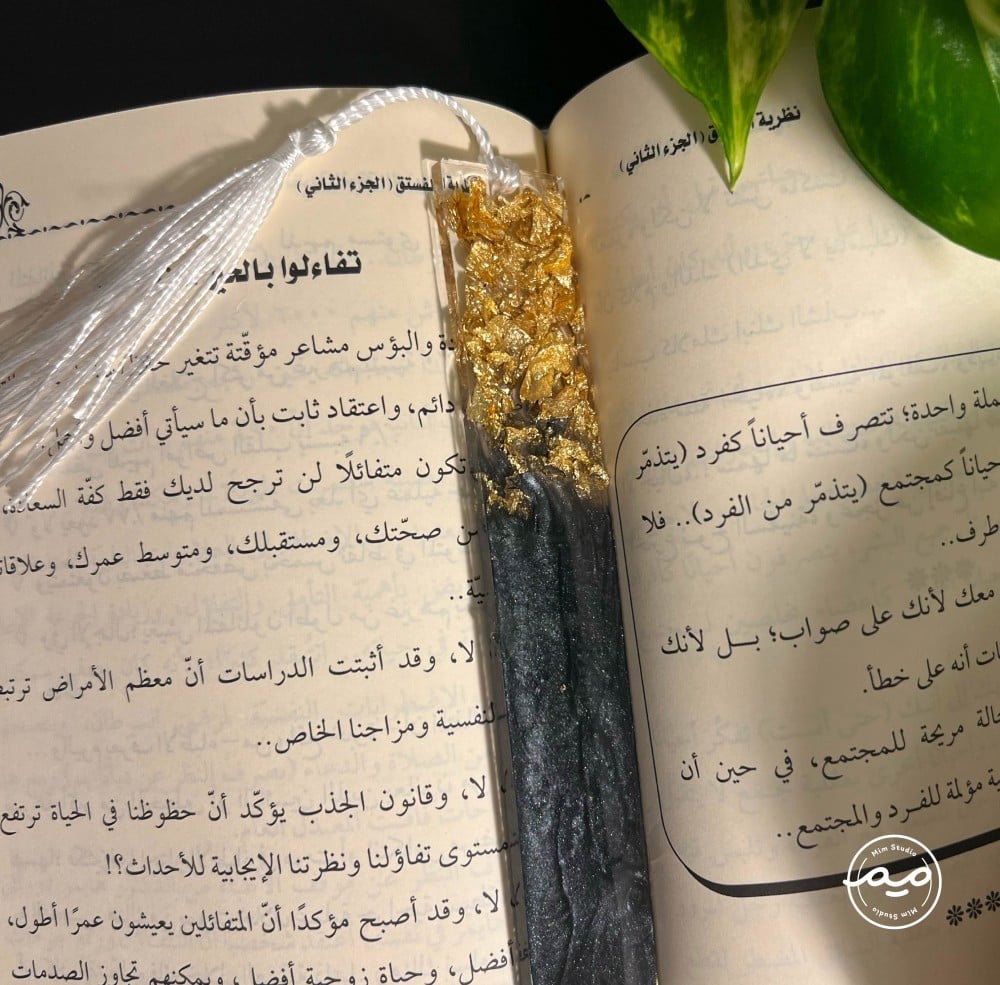 نظرية (الجزء الثاني)
الفستق (الجزء الثاني)
تفاءلوا
والبؤس مشاعر مؤقّتة تتغير
دائم، واعتقاد ثابت بأن ما سيأتي أفضل
تكون متفائلًا لن ترجح لديك فقط كفّة السعادة،
صحّتك، ومستقبلك، ومتوسط عمرك،
لا، وقد أثبتت الدراسات أنّ معظم الأمراض
ومزاجنا الخاص..
لا، وقانون الجذب يؤكّد أنّ حظوظنا في الحياة ترتفع
تفاؤلنا ونظرتنا الإيجابية للأحداث؟!
لا، وقد أصبح مؤكدًا أنّ المتفائلين يعيشون عمرًا أطول،
أفضل، وحياة زوجية أفضل، ويمكنهم تجاوز الصدمات
واحدة؛ تتصرف أحياناً كفرد (يتذمّر
كمجتمع (يتذمّر من الفرد).. فلا
معك لأنك على صواب؛ بـل لأنك
أنه على خطأ.
مريحة للمجتمع، في حين أن
مؤلمة للفـرد والمجتمع..
***
Mim Studio
ميم
Mim Studio